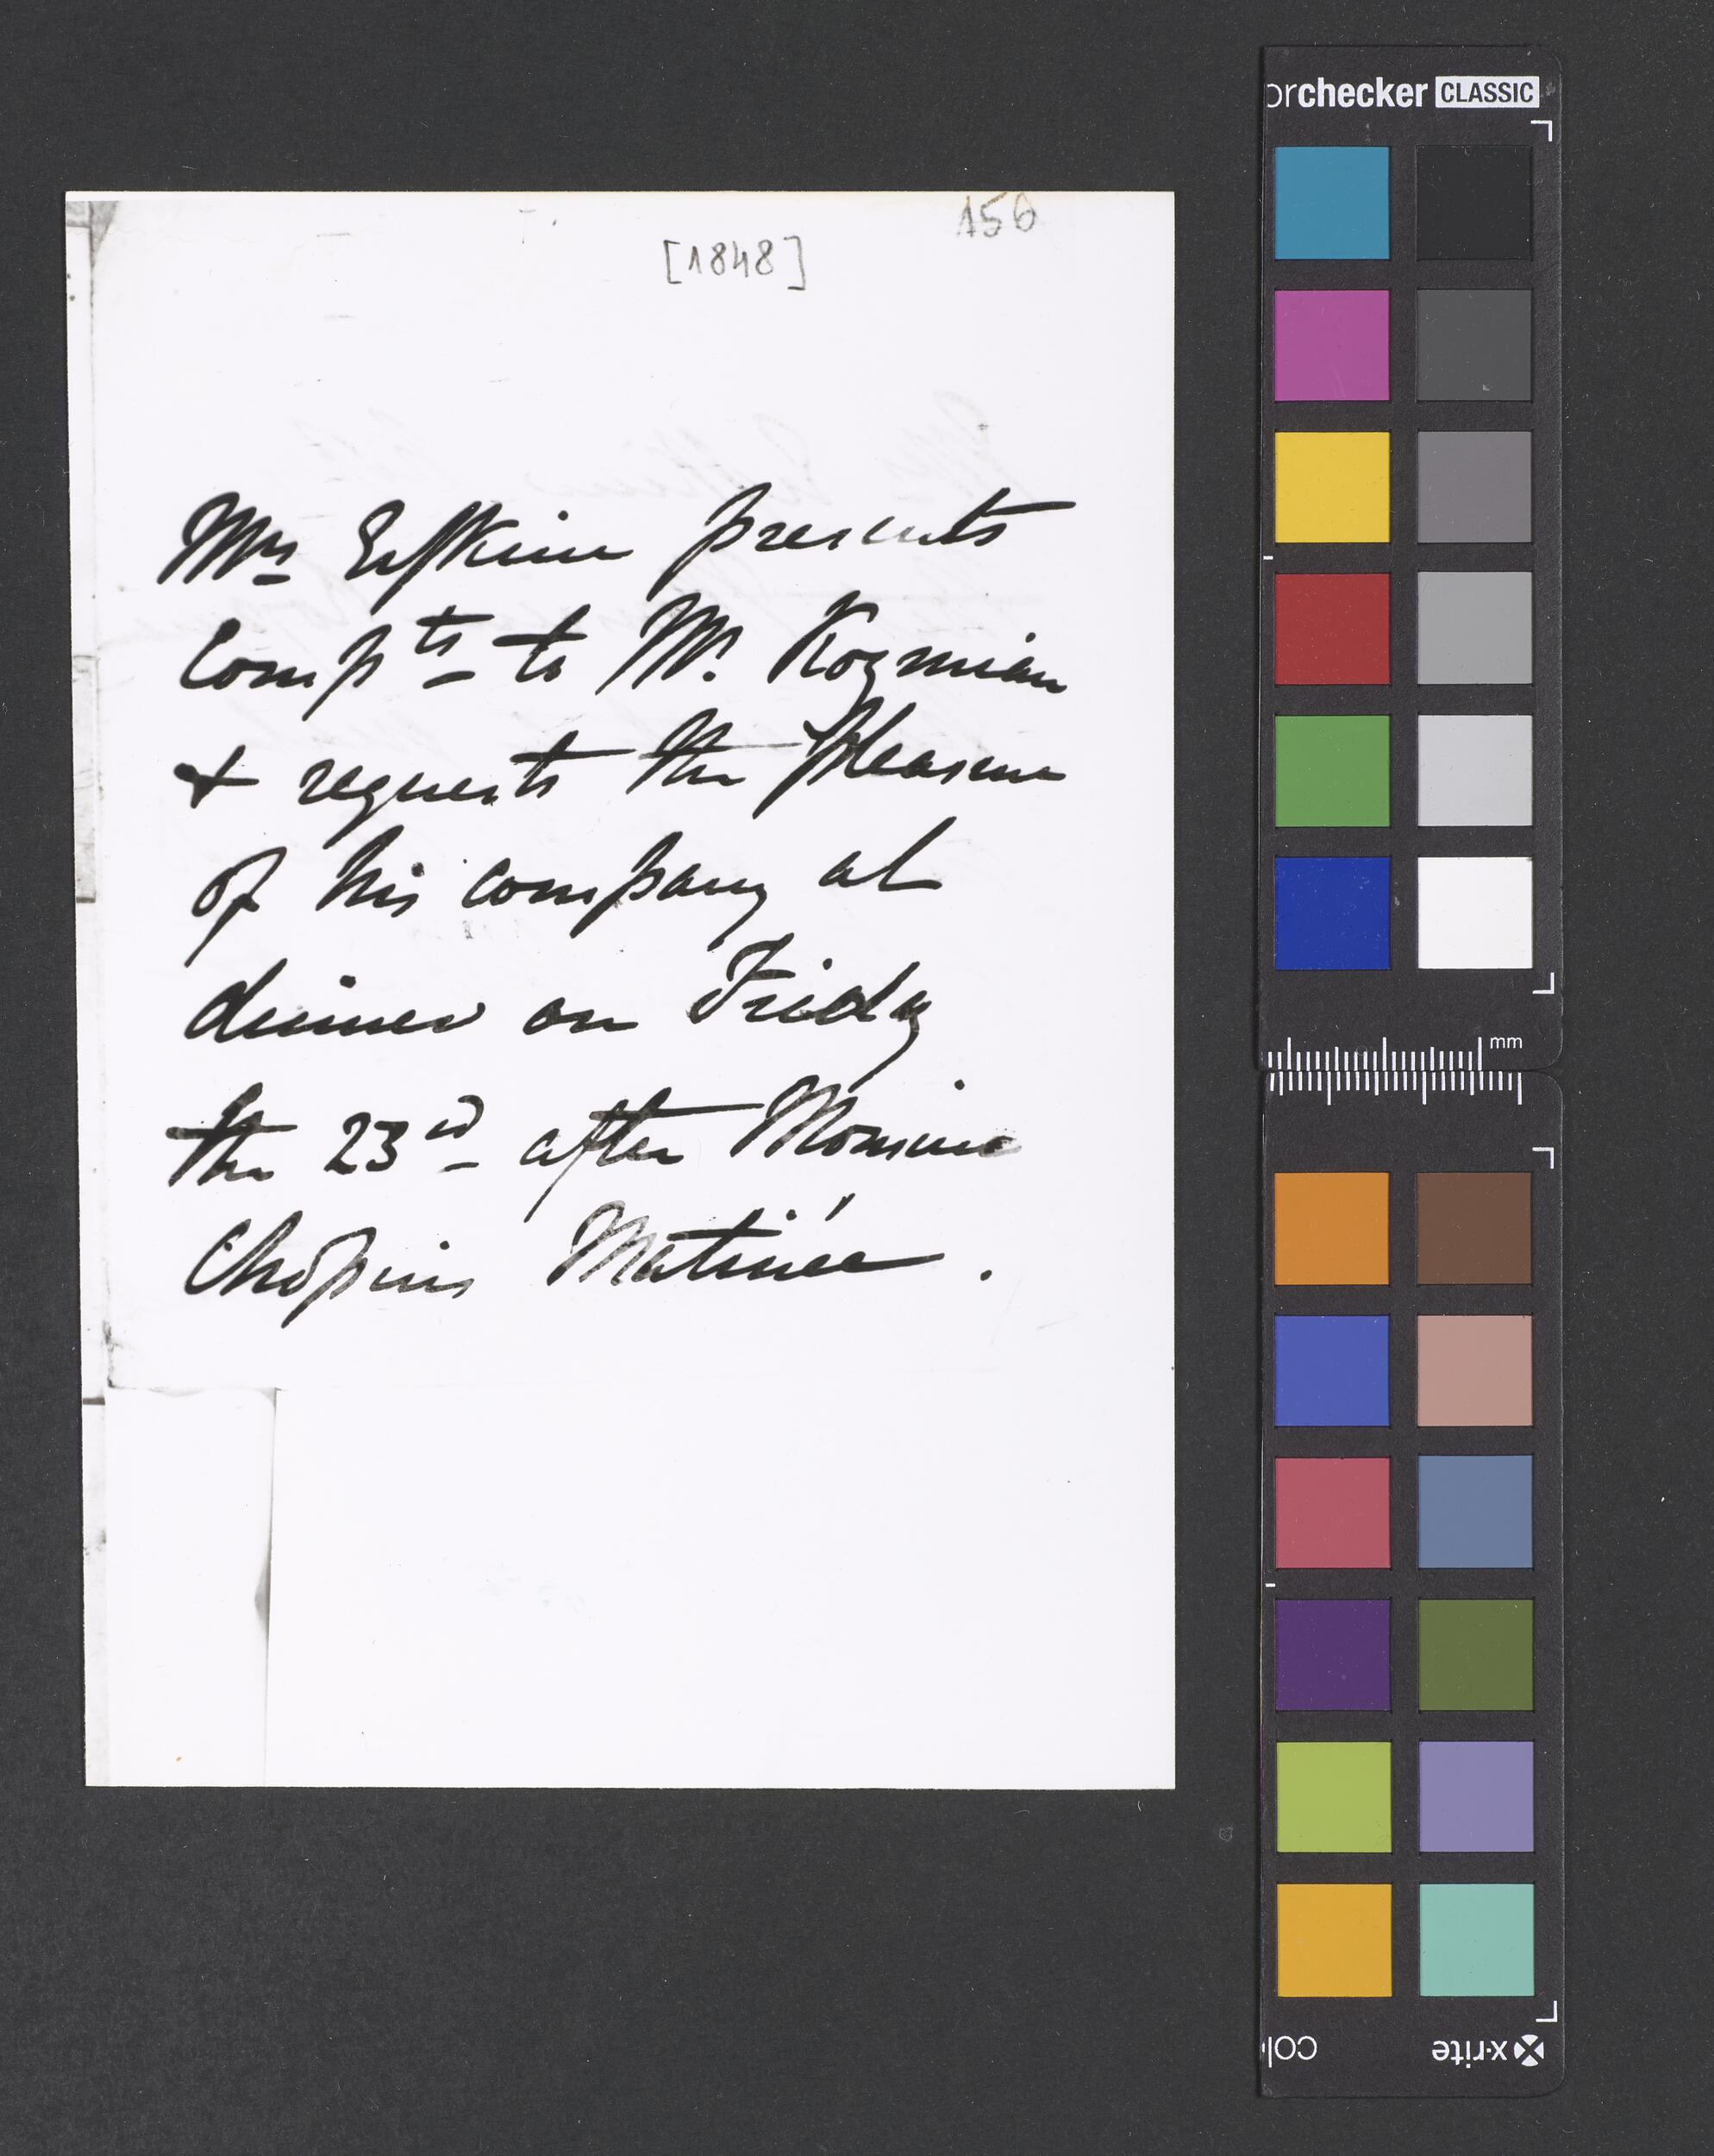 156
[1848]
Mrs Erskine presents
Compts to Mr. Kozmian
& requests the pleasure
of his company at
dinner on Friday
the 23rd after Monsieur
Chopins Matinée.
orchecker CLASSIC
mm
col
x-rite